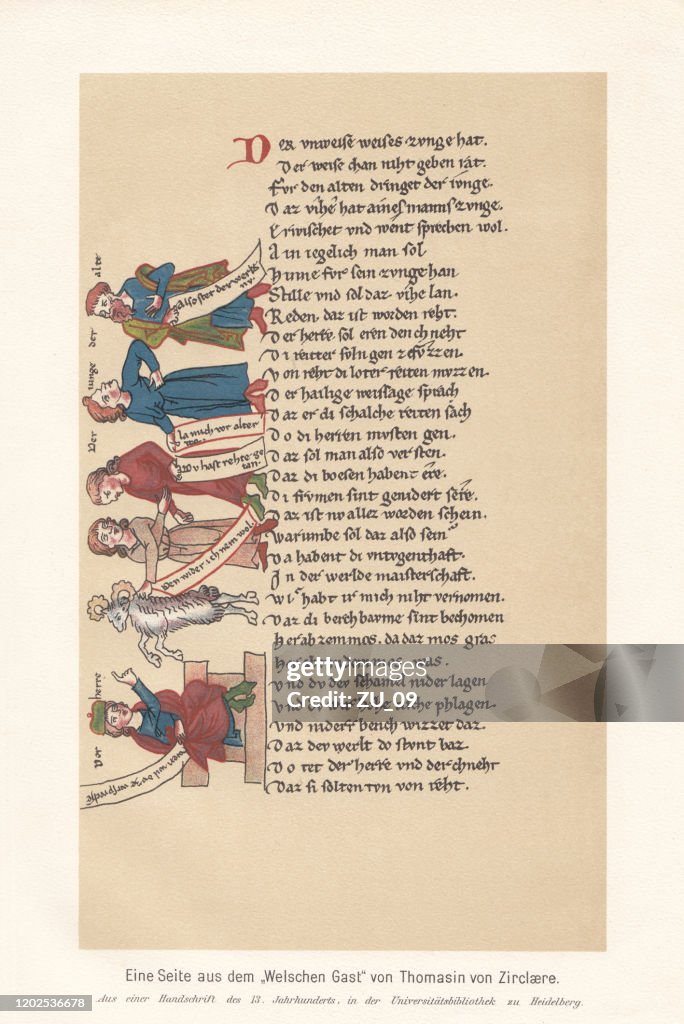 Der vnweise weises zvnge hat.
Der weise chan niht geben rat.
Fvr den alten dringet der ivnge.
Daz vihe hat aines manns zvnge.
Erwischet vnd went sprechen wol.
Ain iegelich man sol
Hvnne fvr sein zvnge han
Stille vnd sol daz vihe lan.
Reden. daz ist worden reht.
Der herre sol eren den chneht
Di reitter svln gen ze fvzzen.
Von reht di loter reiten mvzzen.
Der hailige weissage sprach
Daz er di schalche reiten sach
Do di herren mvsten gen.
Daz sol man also versten.
Daz di boesen habent ere.
Di frvmen sint genidert sere.
Daz ist nv allez worden schein.
Warumbe sol daz also sein
Da habent di vntvgenthaft.
In der werlde maisterschaft.
Wi habt ir mich niht vernomen.
Daz di berch bavme sint bechomen
Her ab zem mos. da daz mos gras
vnd dv dev schamel nider lagen
phlagen.
vnd niderr bench wizzet daz.
Daz dev werlt do stvnt baz
Do tet der herre vnd der chneht
Daz si solten tvn von reht.
alte
Also stet der werlt
nv.
Der iunge der
la mich vor alter
Dv hast rehte ge
tan.
Den wider ich nem wol.
Der herre
gettyimages
Credit: ZU_09
Eine Seite aus dem „Welschen Gast“ von Thomasin von Zirclære.
Aus einer Handschrift des 13. Jahrhunderts, in der Universitätsbibliothek zu Heidelberg.
1202536678